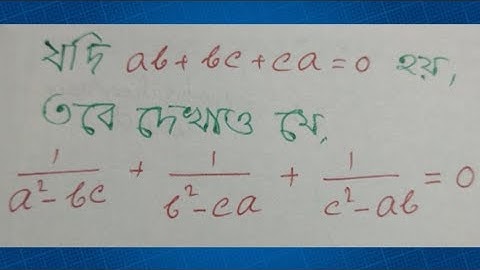 যদি ab+bc+ca=0 হয়,
তবে দেখাও যে,
1/(a²-bc) + 1/(b²-ca) + 1/(c²-ab) = 0